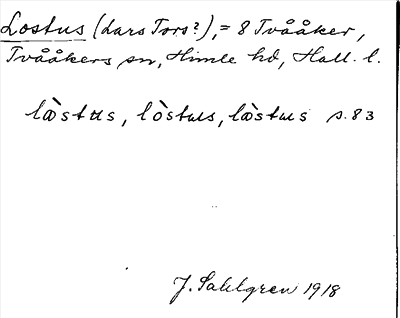 Lostus (Lars Tors?), = 8 Tvååker,
Tvååkers sn, Himle hd, Hall. l.
læ̀stus, lòstus, læ̀stus s. 83
J. Sahlgren 1918